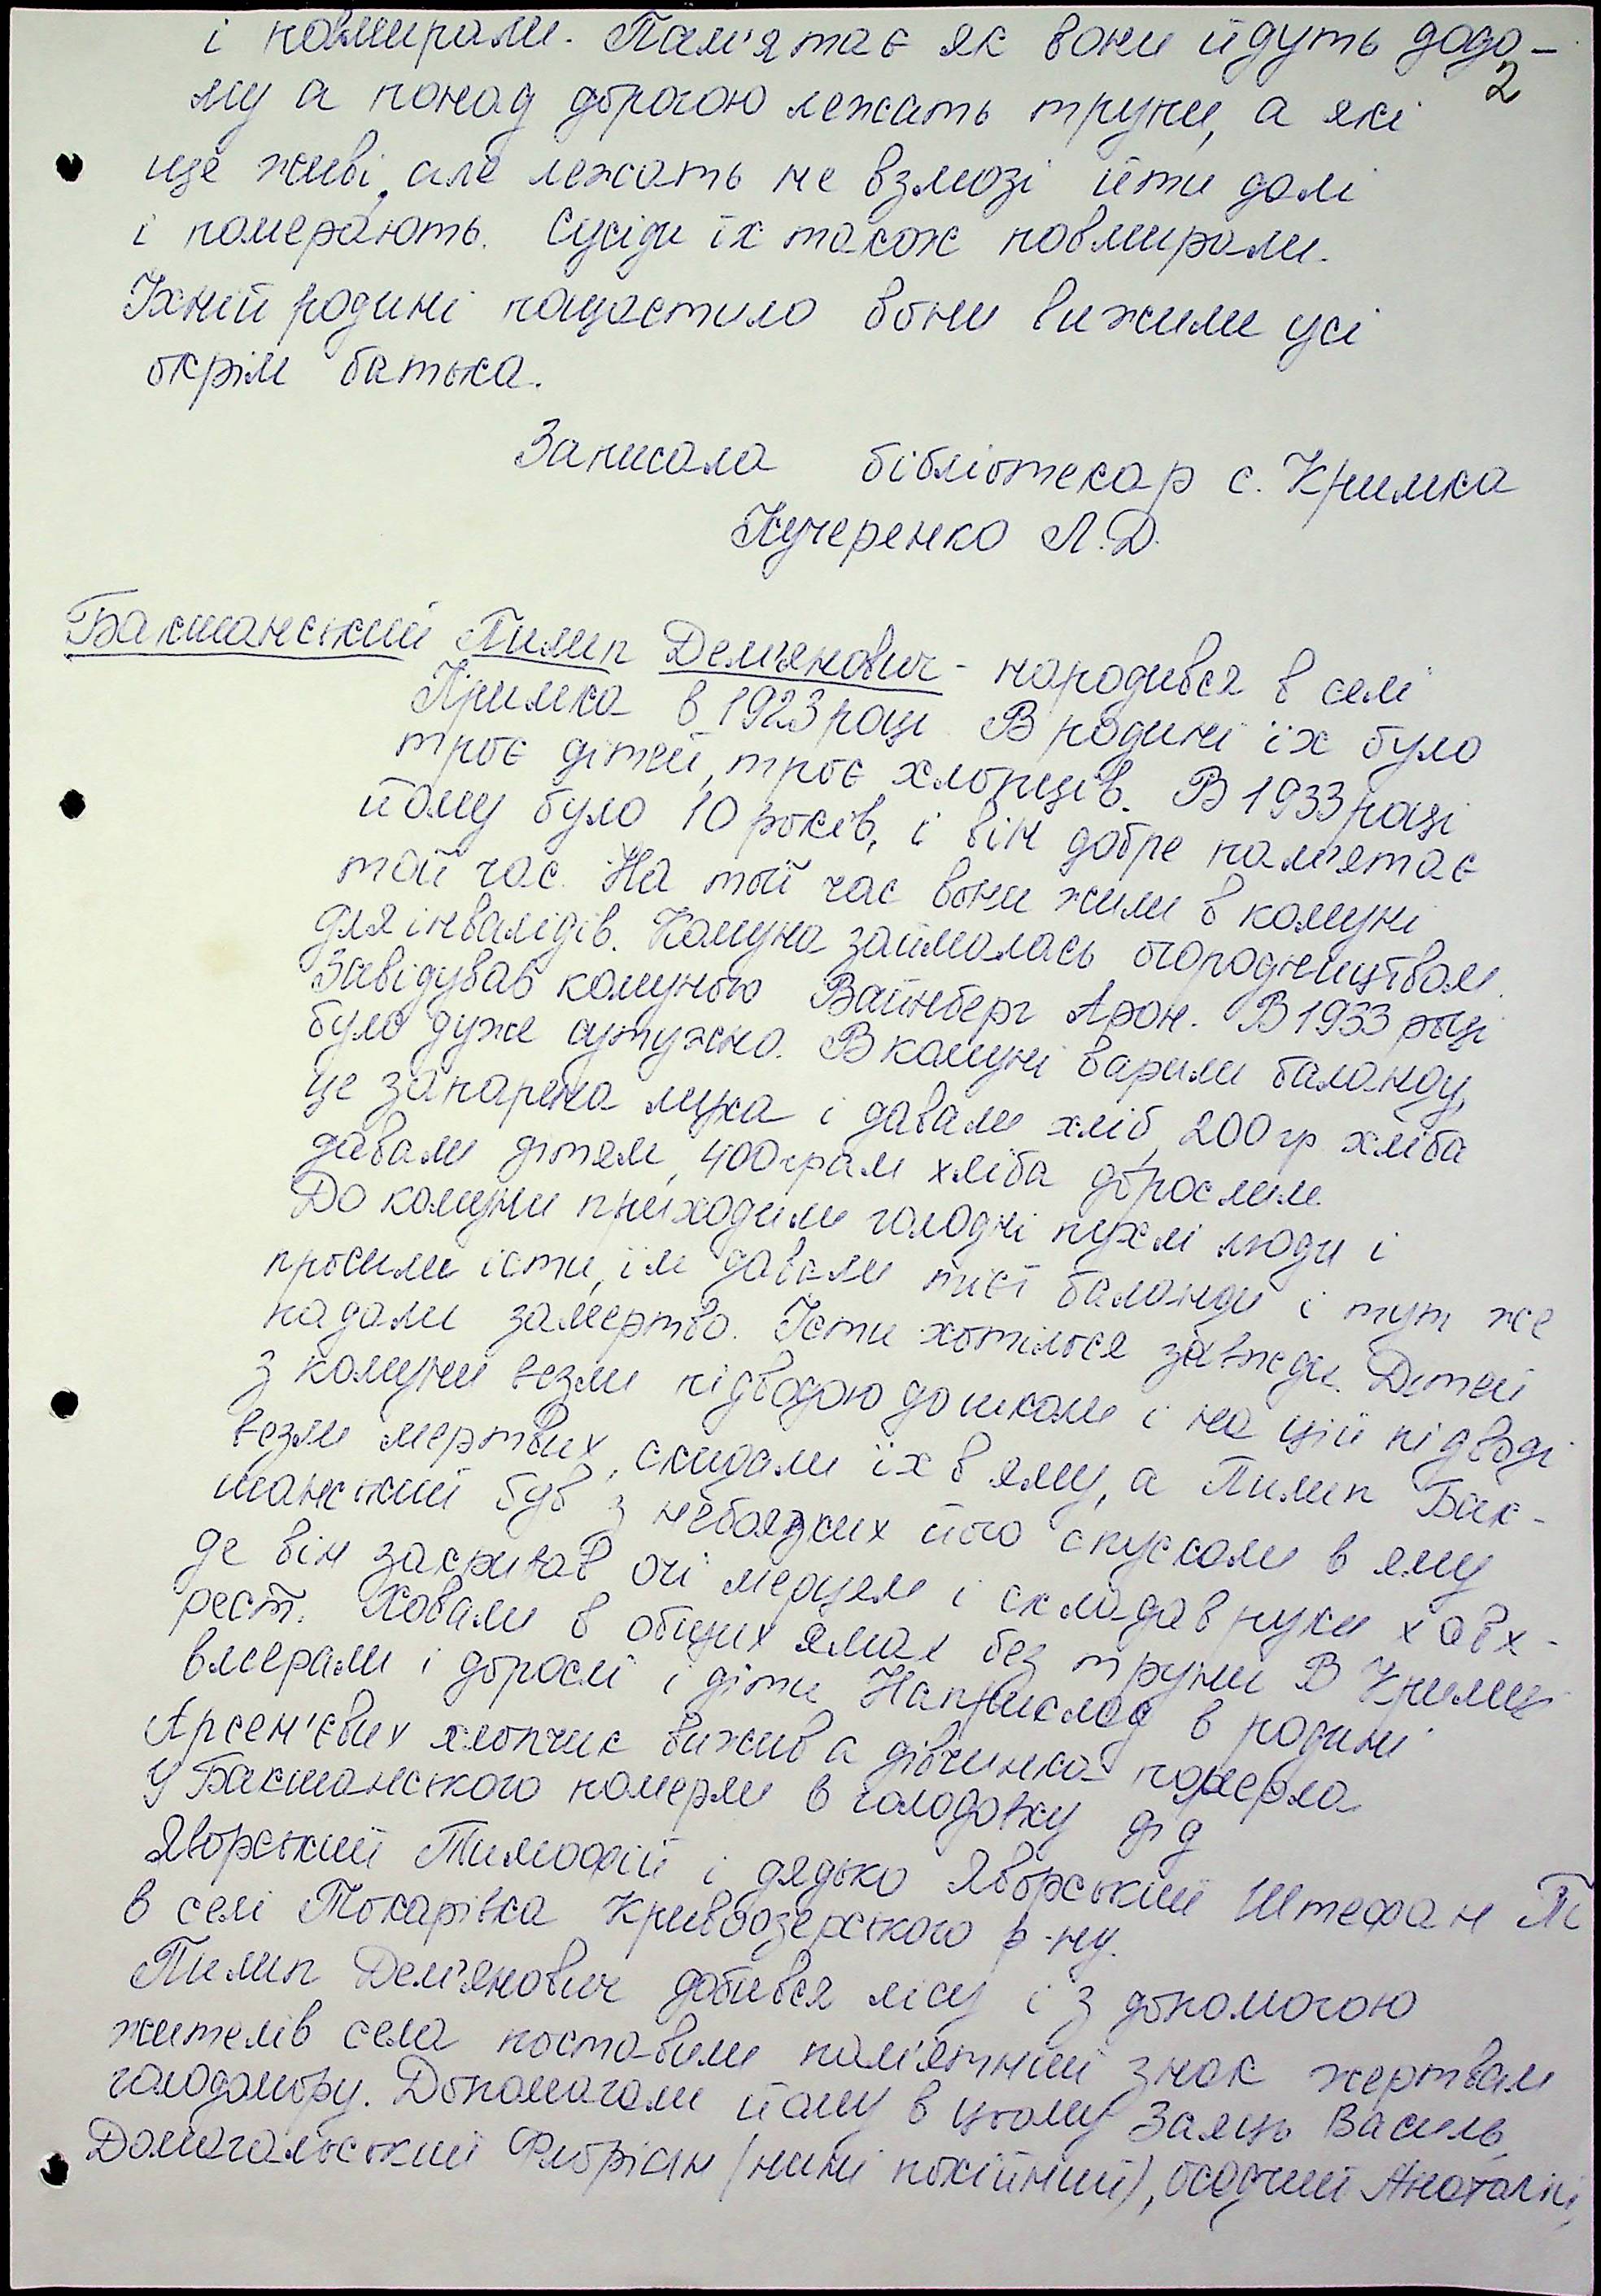 і повмирали. Пам'ятає як вони йдуть додо-
2
му а понад дорогою лежать трупи, а які
ще живі, але лежать не взмозі йти далі
і померають. Сусіди їх також повмирали.
Їхній родині пощастило вони вижили усі
окрім батька.
Записала бібліотекар с. Кримка
Кучеренко Л.Д.
Бакшанський Пилип Дем'янович - народився в селі
Кримка в 1923 році. В родині їх було
троє дітей, троє хлопців. В 1933 році
йому було 10 років, і він добре пам'ятає
той час. На той час вони жили в комуні
для інвалідів. Комуна займалась огородництвом.
Завідував комуною Вайнберг Арон. В 1933 році
було дуже сутужно. В комуні варили баланду,
це запарена мука і давали хліб, 200 гр хліба
давали дітям, 400 грам хліба дорослим.
До комуни приходили голодні пухлі люди і
просили їсти, їм давали тієї баланди і тут же
падали замертво. Їсти хотілося завжди. Дітей
з комуни везли підводою до школи і на цій підводі
везли мертвих, скидали їх в яму, а Пилип Бак-
шанський був з небоязких його спускали в яму
де він закривав очі мерцям і складав руки хавх-
рест. Ховали в общих ямах без труни. В Кримці
вмерали і дорослі і діти. Наприклад в родині
Арсен'євих хлопчик вижив а дівчинка померла.
У Бакшанського померли в голодовку дід
Яворський Тимофій і дядько Яворський Штефан Ті
в селі Токарівка Кривоозерського р-ну.
Пилип Дем'янович добився лісу і з допомогою
жителів села поставили пам'ятний знак жертвам
голодомору. Допомагали йому в цьому Заяць Василь,
Домагальський Флоріан (нині покійний), Осадчий Анатолій,